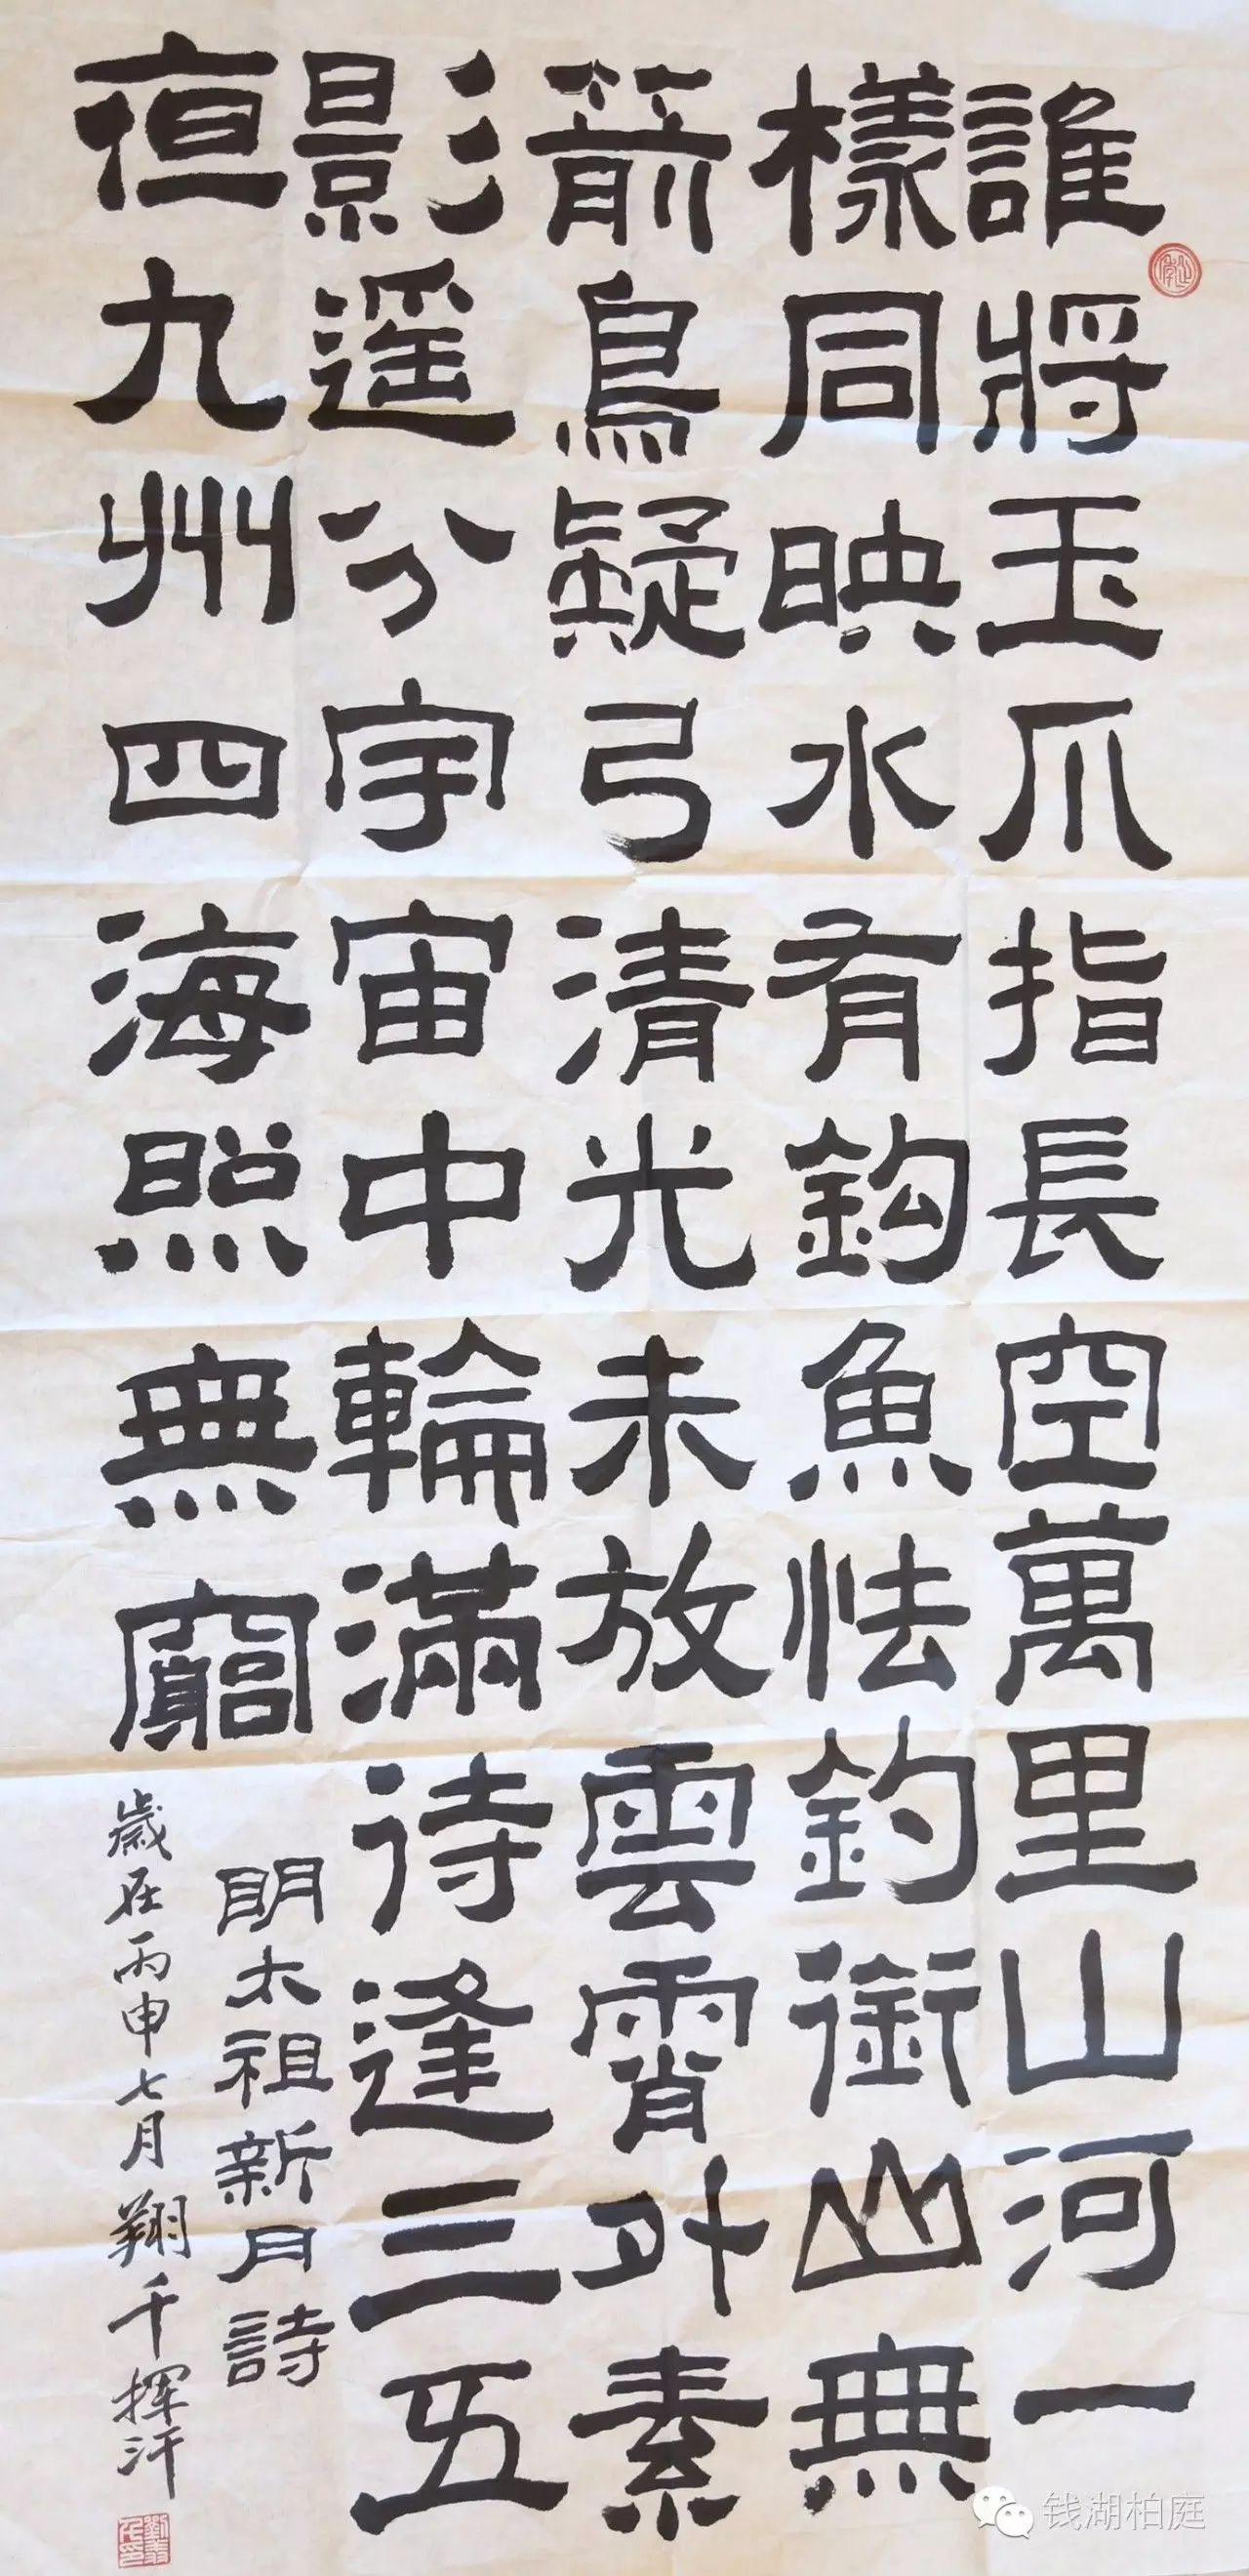 誰將玉爪指長空萬里山河一
樣同映水有鈎魚怯釣銜山無
箭鳥疑弓清光未放雲霄外素
影遥分宇宙中輪滿待逢三五
夜九州四海照無窮
明太祖新月詩
歲在丙申七月翔千揮汗
钱湖柏庭